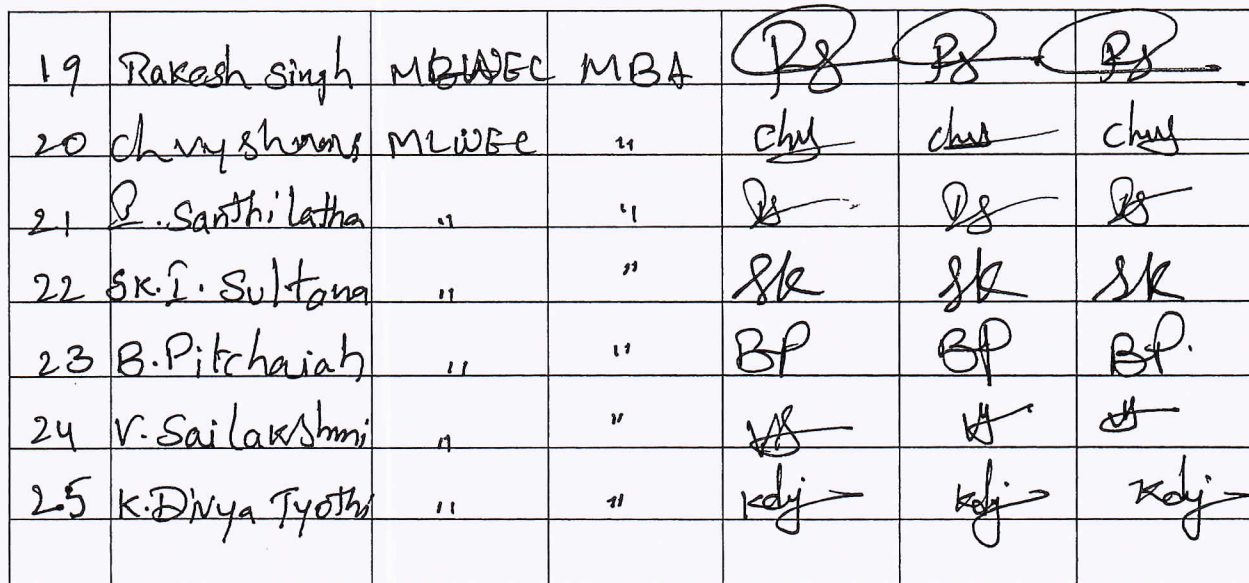 19 Rakesh Singh MBA Rs Rs Rs
20 MLWEC " chy chy
21 P. Santhi Latha " " Ps Ps Ps
22 SK. I. Sultana " " SK SK SK
23 B. Pitchaiah " " BP BP BP.
24 V. Sai Lakshmi " " VS
25 K. Divya Jyothi " " kdj kdj kdj